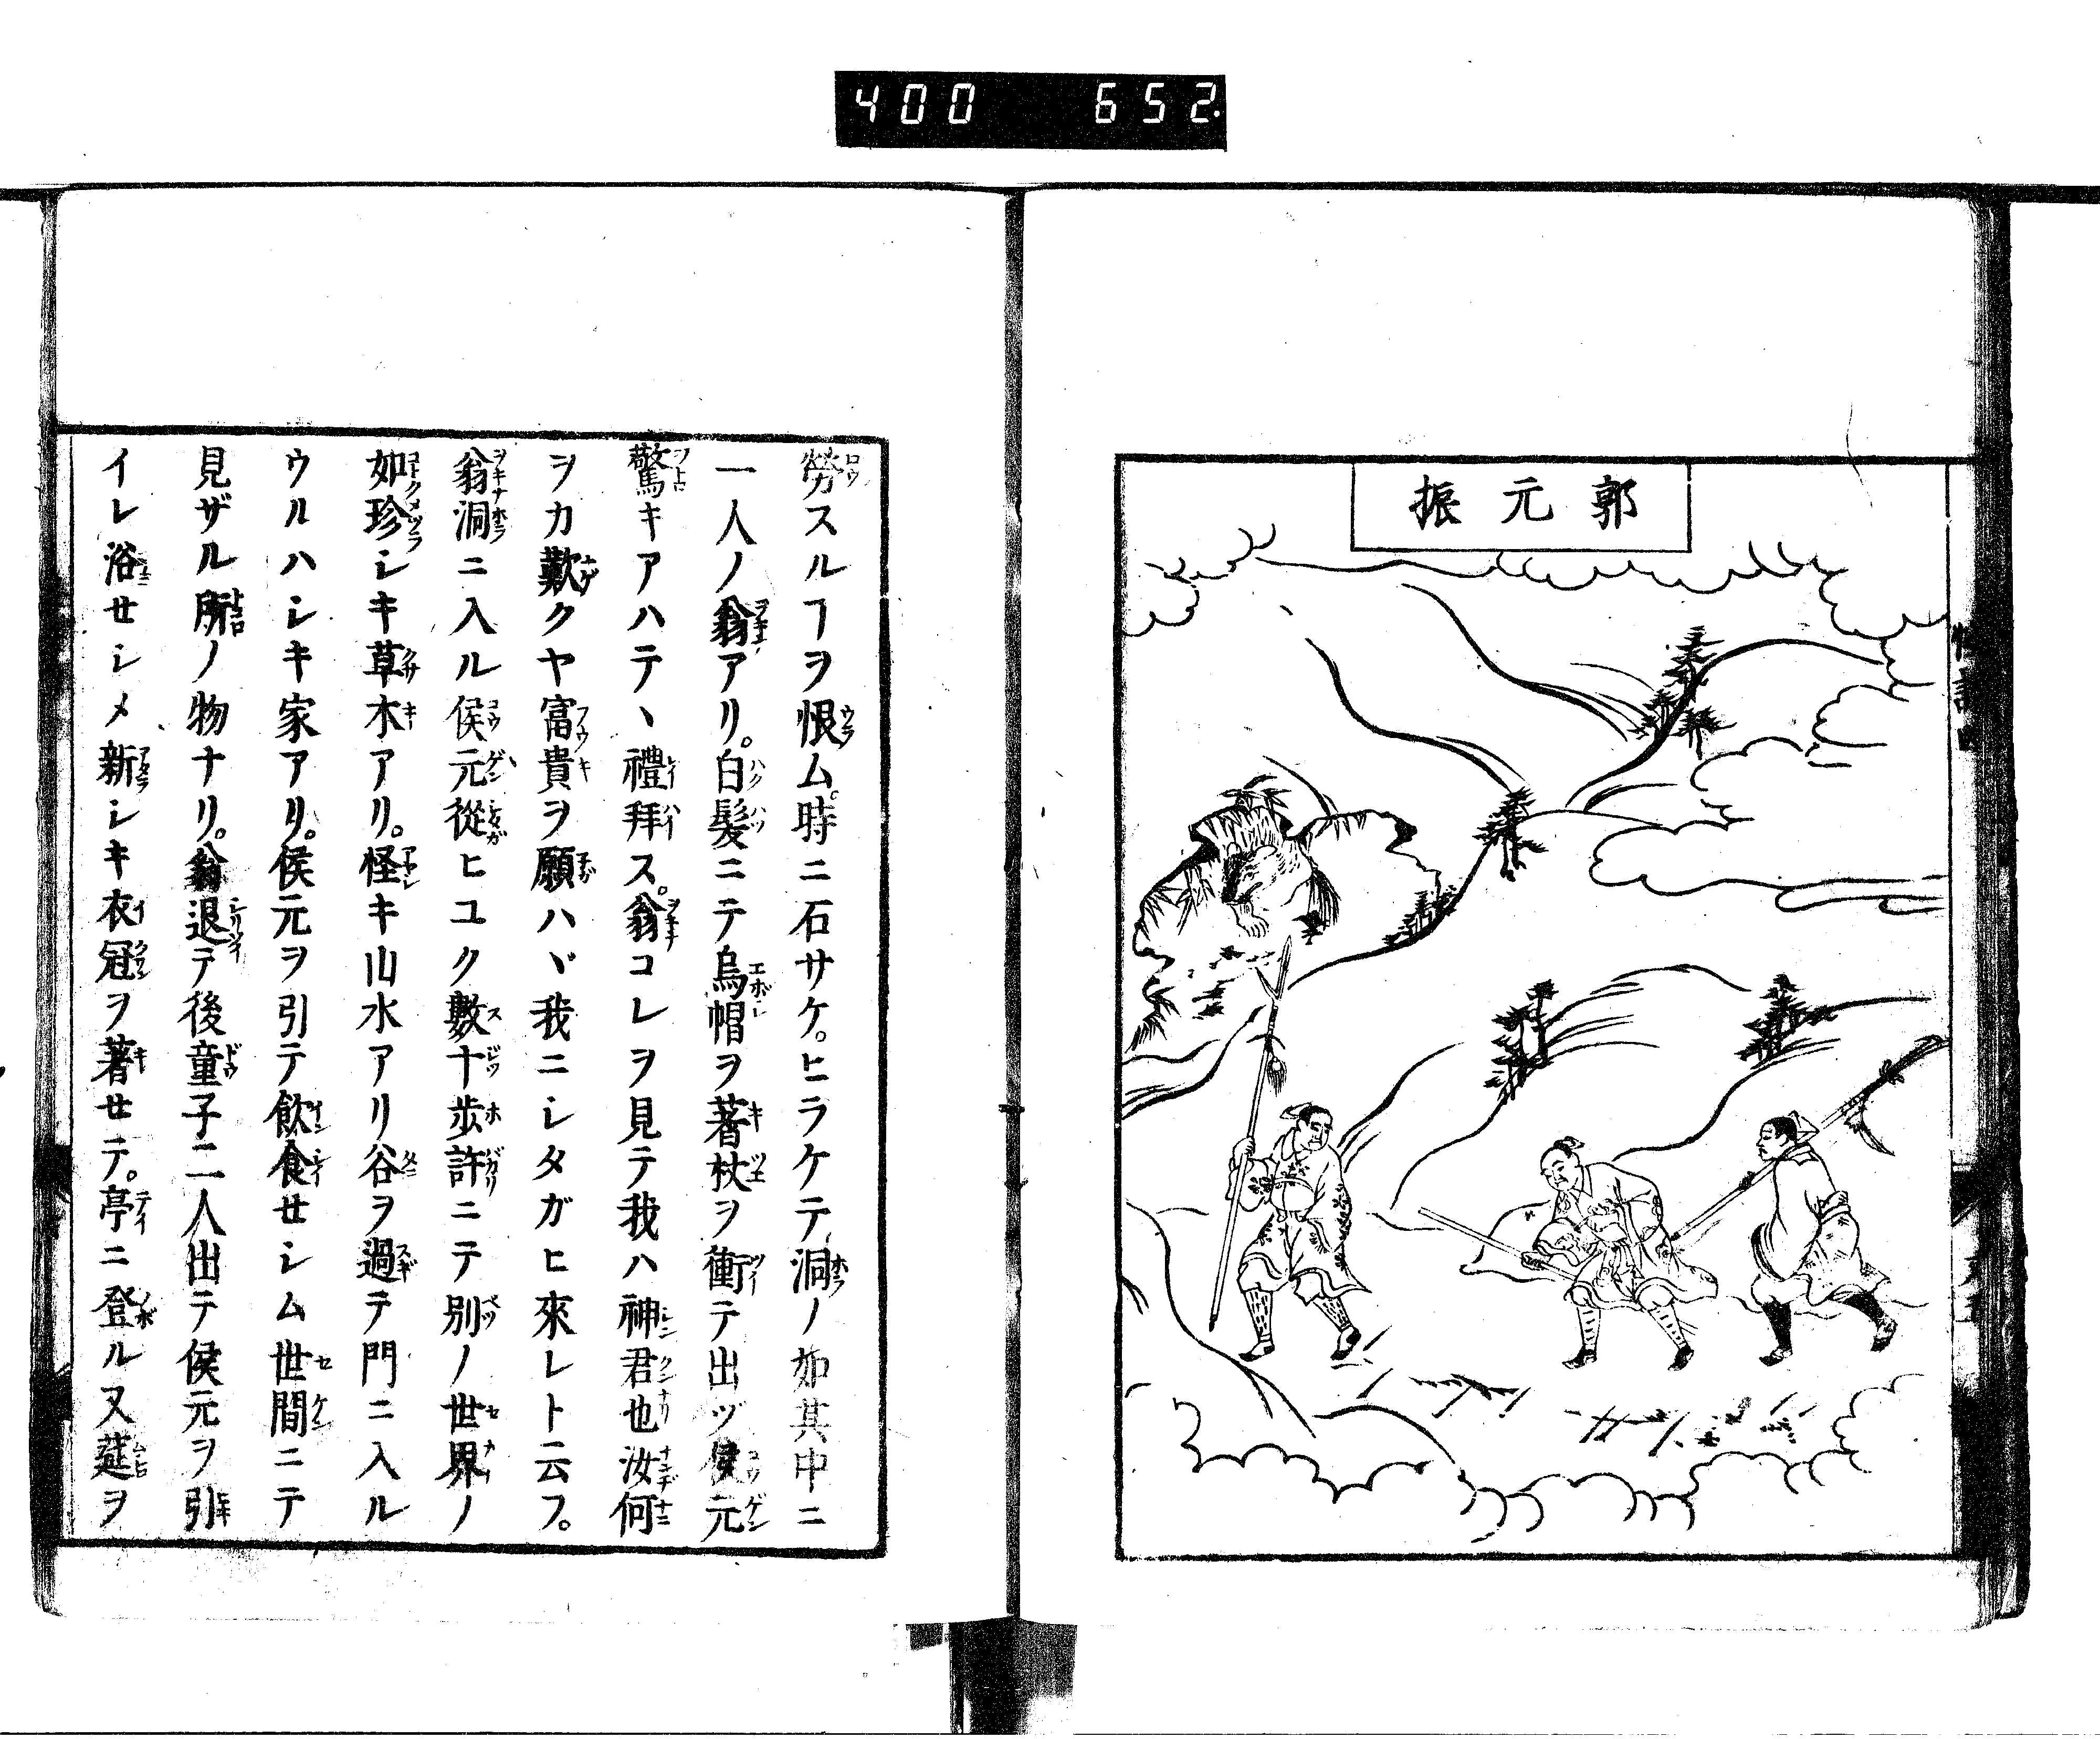 400 652
郭元振
勞スルヿヲ恨ム。時ニ石サケ。ヒラケテ洞ノ如其中ニ
一人ノ翁アリ。白髪ニテ烏帽ヲ著杖ヲ衝テ出ヅ侯元
驚キアハテヽ禮拜ス。翁コレヲ見テ我ハ神君也汝何
ヲカ歎クヤ富貴ヲ願ハヾ我ニシタガヒ來レト云フ。
翁洞ニ入ル侯元從ヒユク數十歩許ニテ別ノ世界ノ
如珍シキ草木アリ。怪キ山水アリ谷ヲ過テ門ニ入ル
ウルハシキ家アリ。侯元ヲ引テ飲食セシム世間ニテ
見ザル所ノ物ナリ。翁退テ後童子二人出テ侯元ヲ引
イレ浴セシメ新シキ衣冠ヲ著セテ。亭ニ登ル又莚ヲ